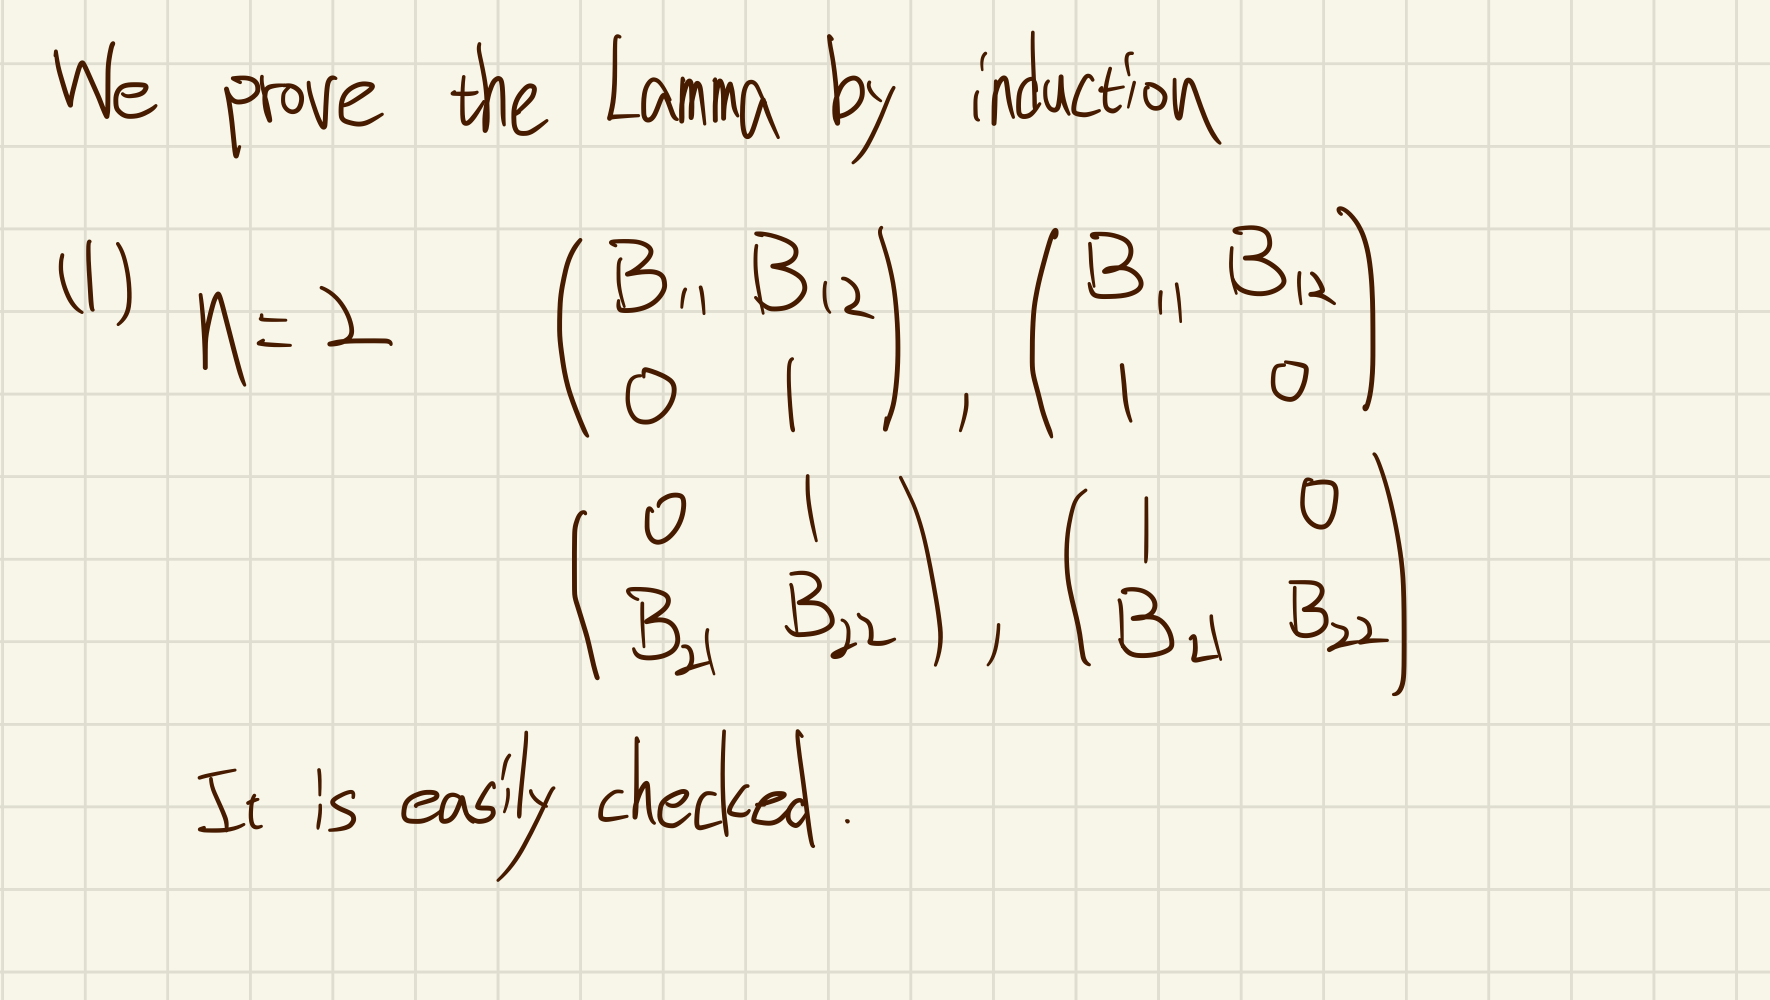 We prove the Lamma by induction
(1) n=2 $\begin{pmatrix} B_{11} & B_{12} \\ 0 & 1 \end{pmatrix}, \begin{pmatrix} B_{11} & B_{12} \\ 1 & 0 \end{pmatrix}$
$\begin{pmatrix} 0 & 1 \\ B_{21} & B_{22} \end{pmatrix}, \begin{pmatrix} 1 & 0 \\ B_{21} & B_{22} \end{pmatrix}$
It is easily checked.